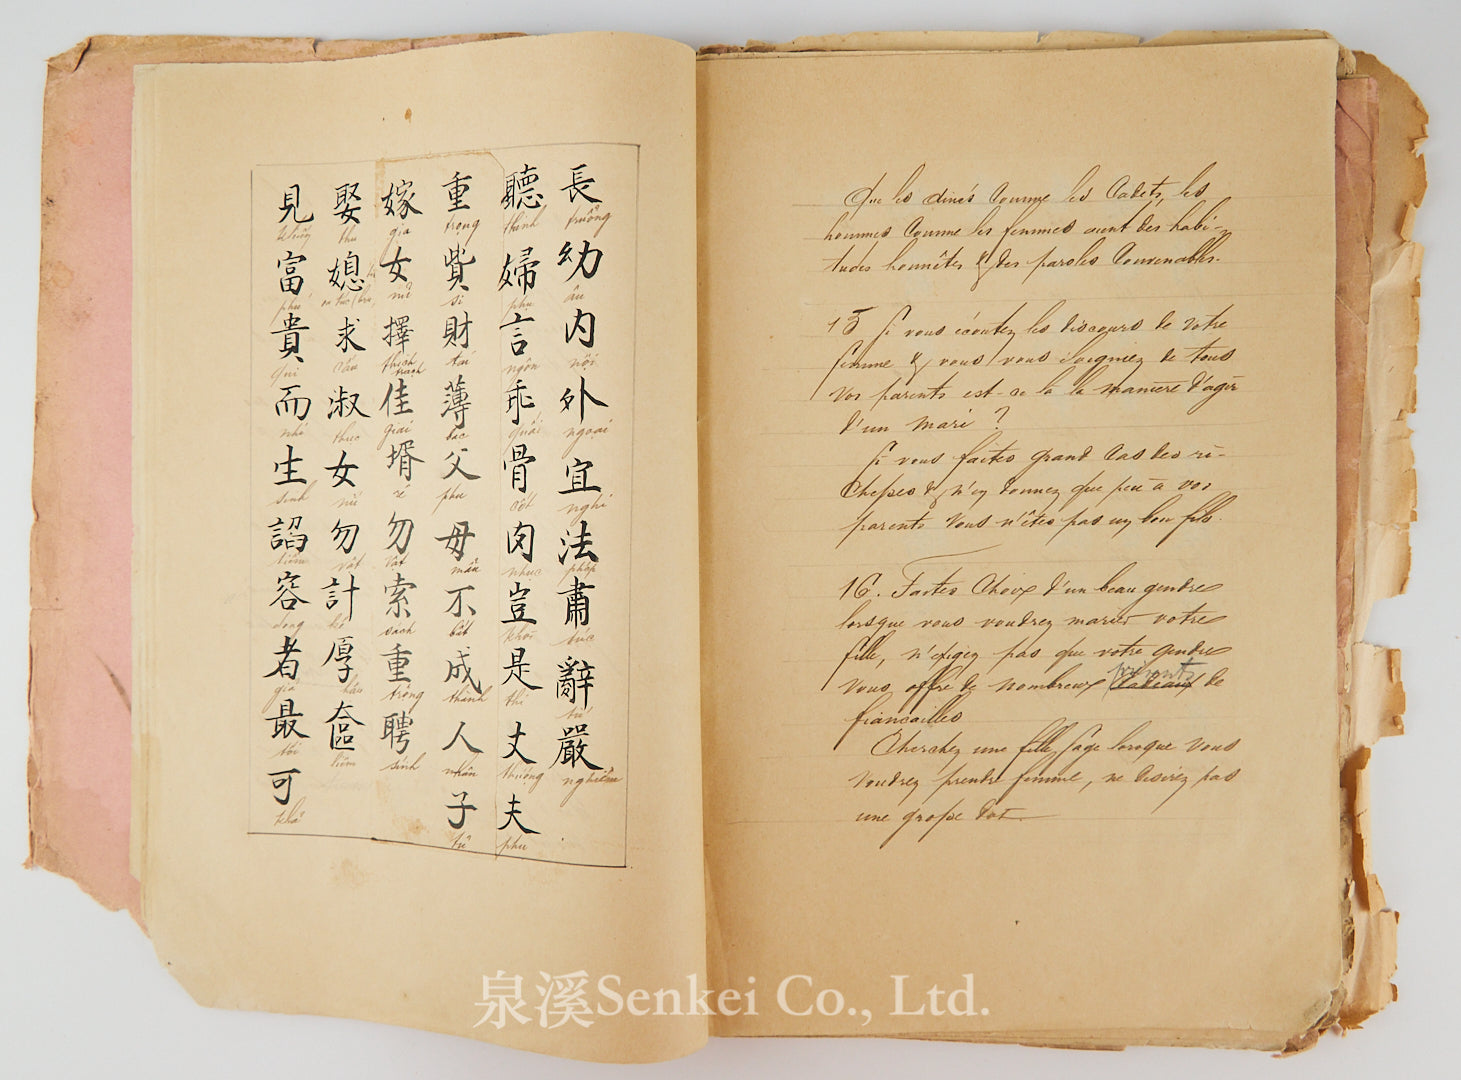 長幼内外宜法肅辭嚴
truổng âu nội ngoại nghi pháp túc từ nghiêm
聽婦言乖骨肉豈是丈夫
thinh phụ ngôn quai cốt nhục khởi thi truong phu
重貲財薄父母不成人子
trọng si tai bac phu mẫu bất thành nhân tử
嫁女擇佳壻勿索重聘
gia nữ trạch giai tế vật sách trọng sính
娶媳求淑女勿計厚奩
thu tuc cầu thuc nữ vật kế hậu liêm
見富貴而生諂容者最可
kiến phú quí nhi sinh siểm dong gia tối khả
Que les ainés comme les cadets, les
hommes comme les femmes aient des habi-
tudes honnêtes & des paroles convenables.
15 Si vous écoutez les discours de votre
femme & vous vous éloigniez de tous
vos parents est-ce là la manière d'agir
d'un mari ?
Si vous faites grand cas des ri-
chesses & n'en donnez que peu à vos
parents vous n'êtes pas un bon fils.
16. Faites choix d'un beau gendre
lorsque vous voudrez marier votre
fille, n'exigez pas que votre gendre
vous offre de nombreux cadeaux présents de
fiancailles
Cherchez une fille sage lorsque vous
voudrez prendre femme, ne desirez pas
une grosse dot
泉溪Senkei Co., Ltd.